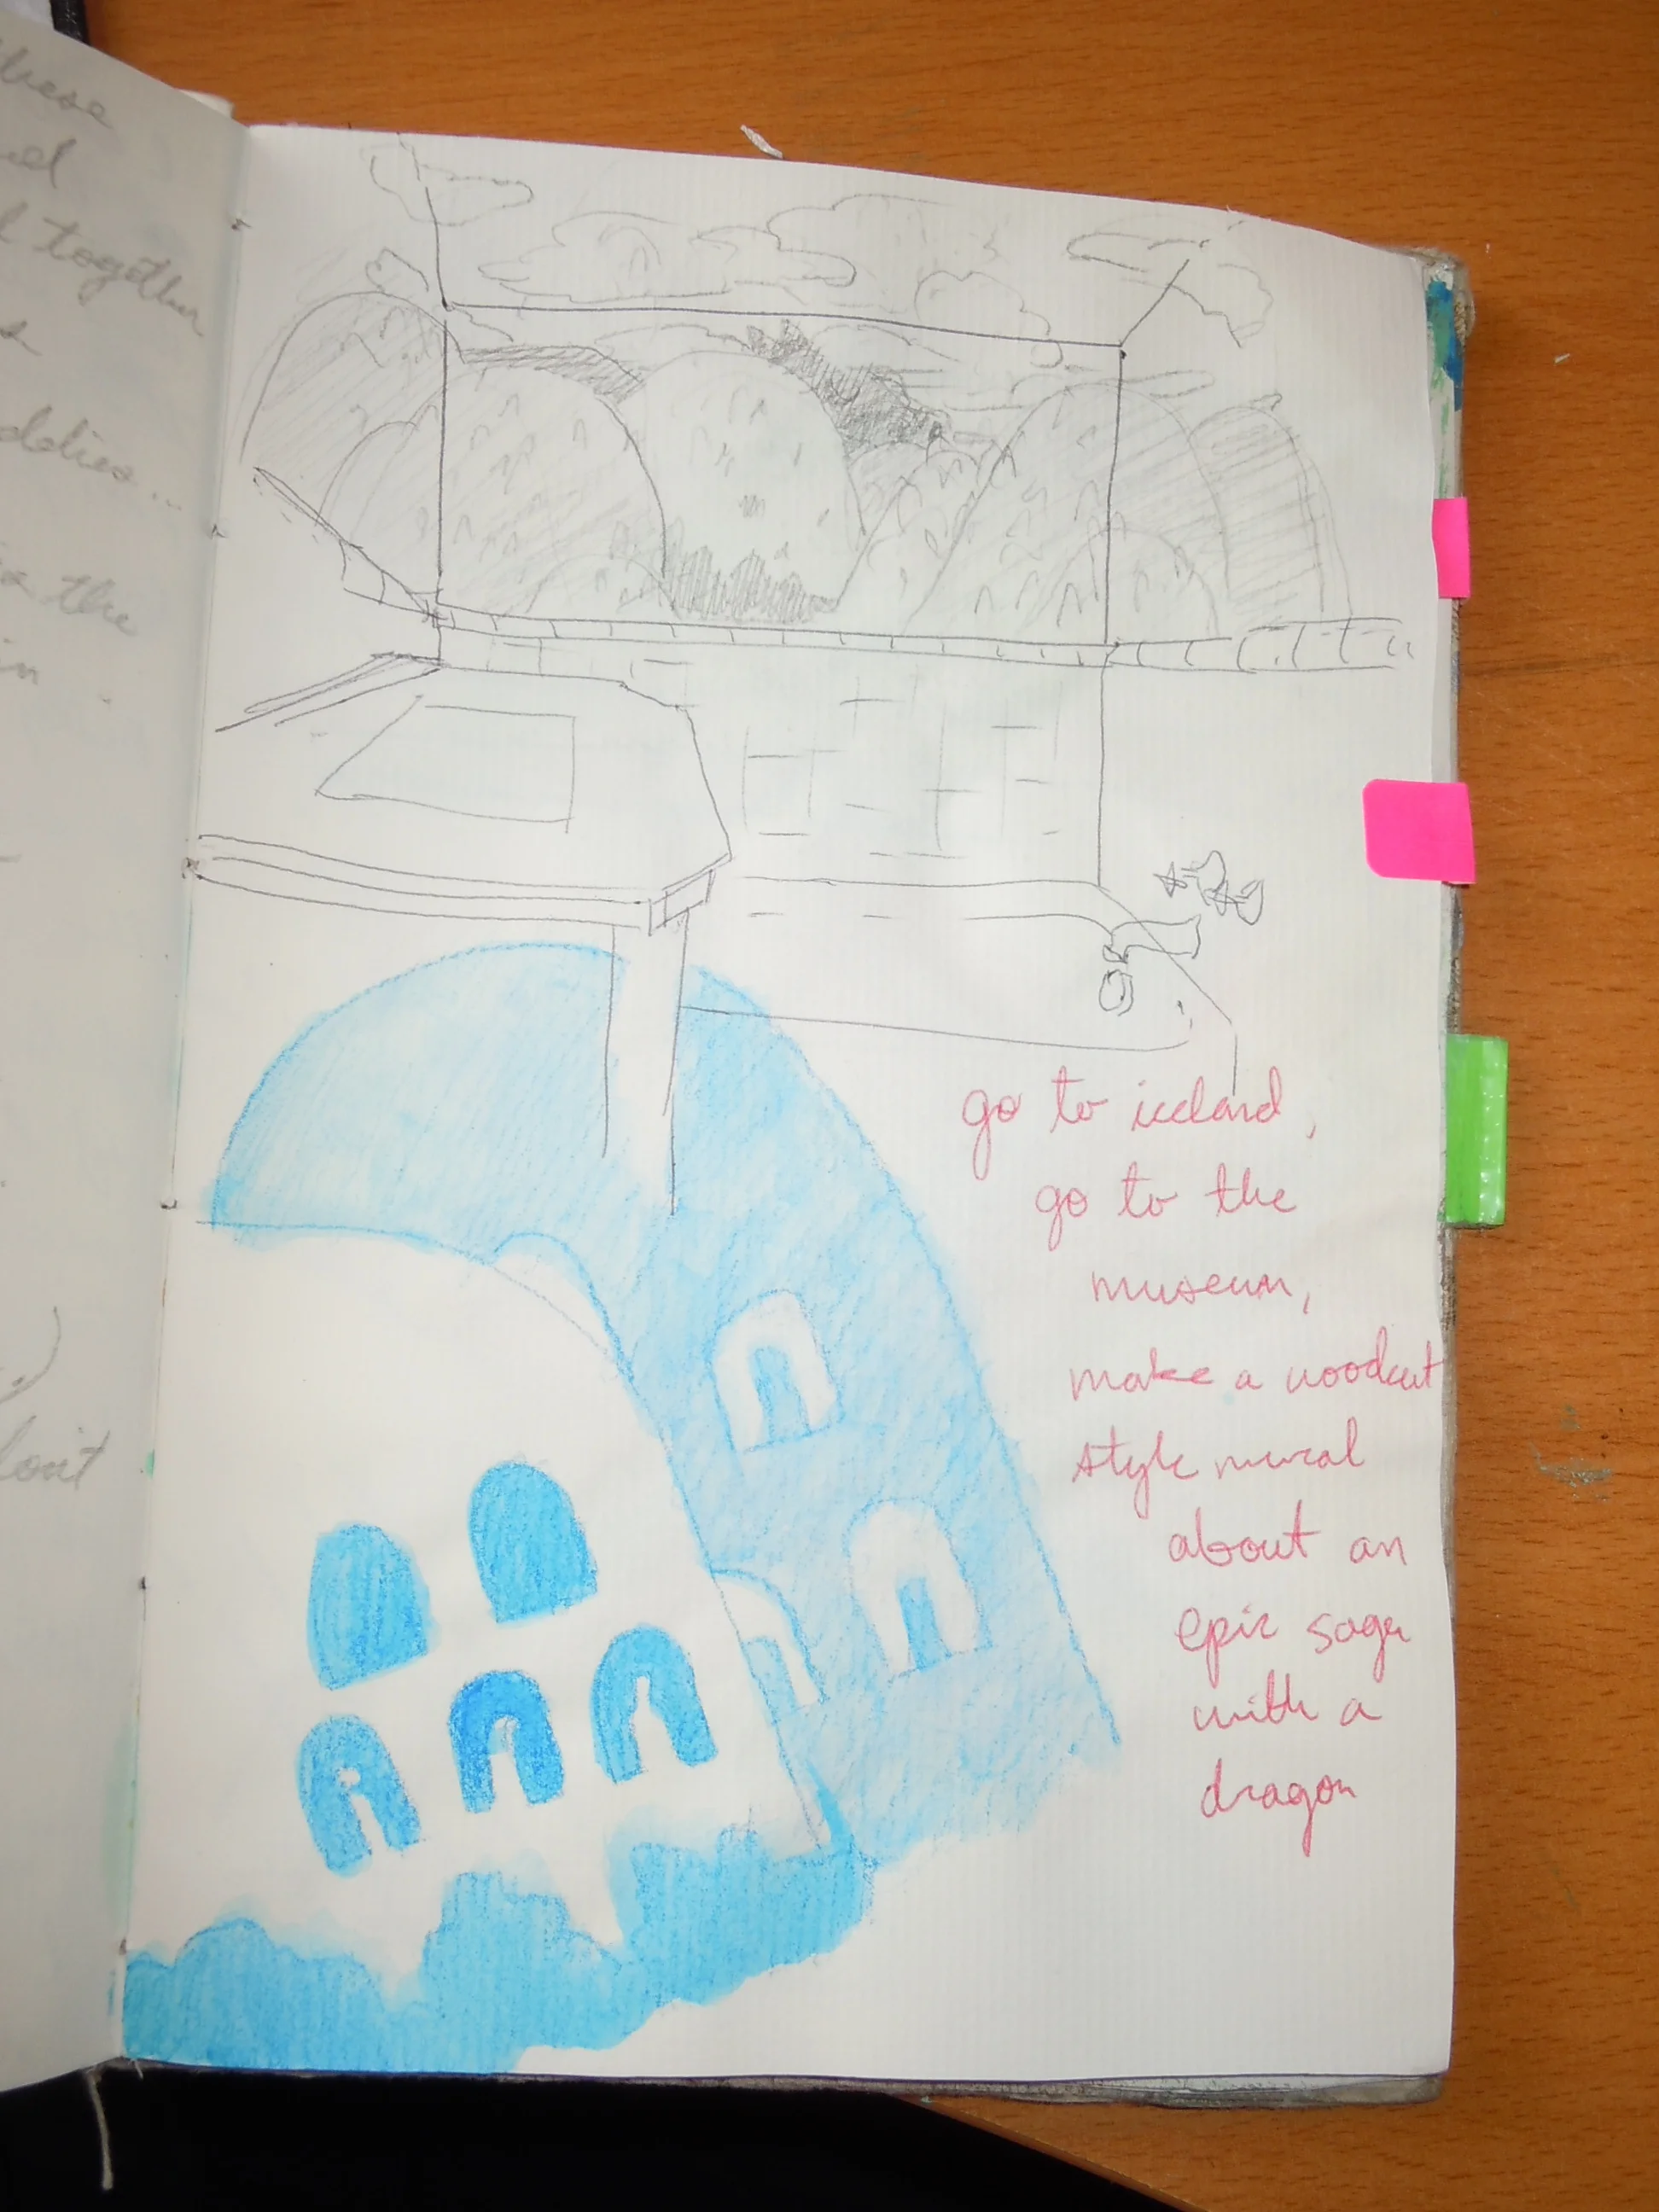 these
ed
together
s
the
in
go to iceland,
go to the
museum,
make a woodcut
style mural
about an
epic saga
with a
dragon